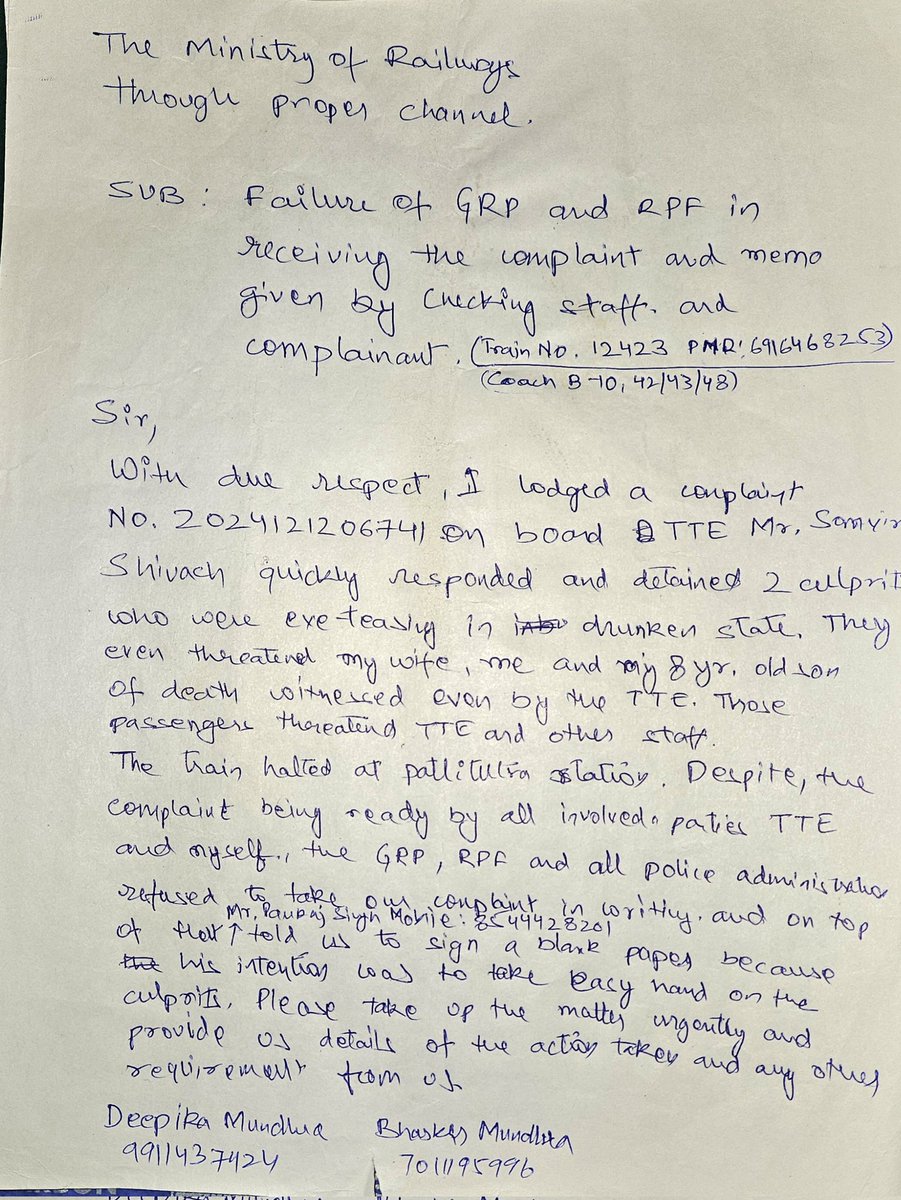 The Ministry of Railways
through proper channel.
SUB : Failure of GRP and RPF in
receiving the complaint and memo
given by Checking staff. and
complainant. (Train No. 12423 PNR: 6916468253)
(Coach B-10, 42/43/48)
Sir,
With due respect, I lodged a complaint
No. 2024121206741 on board TTE Mr. Somvir
Shivach quickly responded and detained 2 culprit
who were eve-teasing in drunken state. They
even threatend my wife, me and my 8 yr. old son
of death witnessed even by the TTE. Those
passengers thereatend TTE and other staff.
The train halted at station. Despite, the
complaint being ready by all involved parties TTE
and myself., the GRP, RPF and all police administration
refused to take our complaint in writing. and on top
Mr. Pankaj Singh Mobile: 8544428201
of that ↑ told us to sign a blank papes because
his intention was to take easy hand on the
culprits. Please take up the matter urgently and
provide us details of the action taken and any other
requirement from us
Deepika Mundhra Bhasker Mundhra
9911437424 7011195996